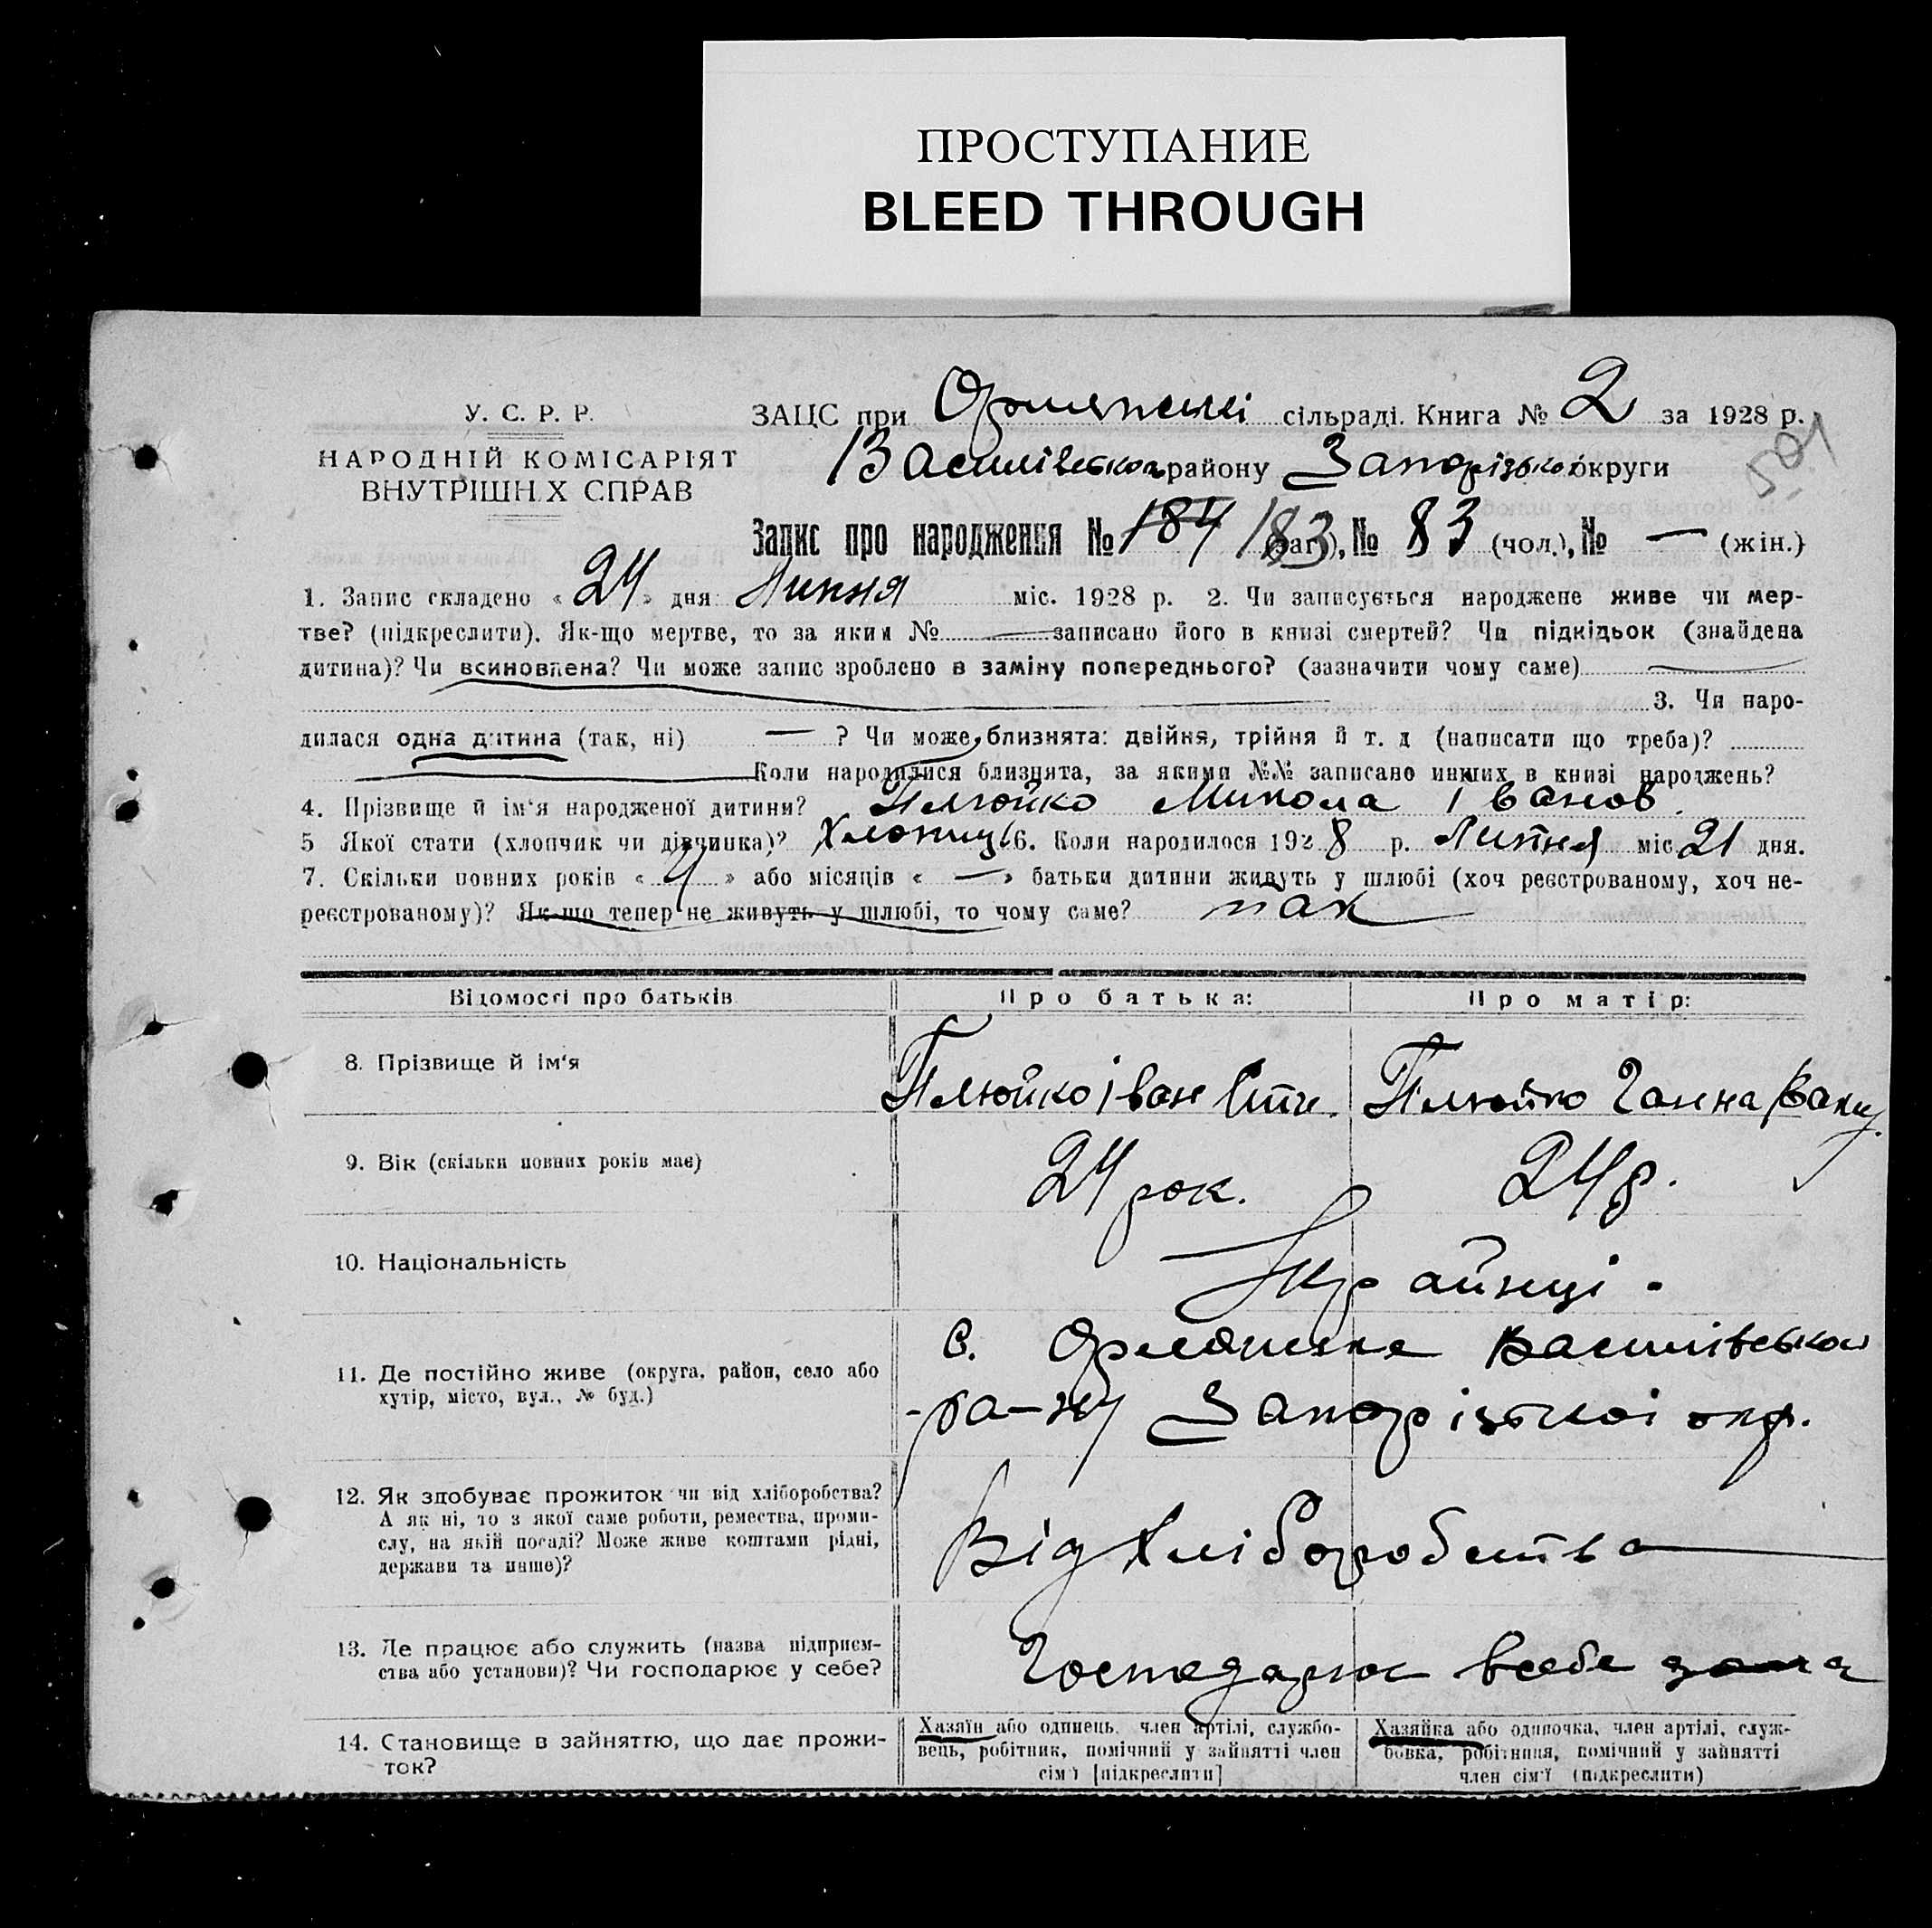 ПРОСТУПАНИЕ
BLEED THROUGH
У. С. Р. Р.
НАРОДНІЙ КОМІСАРІЯТ
ВНУТРІШН Х СПРАВ
ЗАЦС при сільраді. Книга № 2 за 1928 р.
501
Василівськ району Запорізької округи
Запис про народження № 184 183 (заг.), № 83 (чол.), № — (жін.)
1. Запис складено « 24 » дня Липня міс. 1928 р. 2. Чи записується народжене живе чи мер-
тве? (підкреслити). Як-що мертве, то за яким № — записано його в книзі смертей? Чи підкідьок (знайдена
дитина)? Чи всиновлена? Чи може запис зроблено в заміну попереднього? (зазначити чому саме)
3. Чи наро-
дилася одна дитина (так, ні) — ? Чи може, близнята: двійня, трійня й т. д (написати що треба)?
Коли народилися близнята, за якими №№ записано инших в книзі народжень?
4. Прізвище й ім'я народженої дитини? Плюйко Микола Іванов.
5 Якої стати (хлопчик чи дівчинка)? Хлопець 6. Коли народилося 1928 р. Липня міс. 21 дня.
7. Скільки повних років « 4 » або місяців « — » батьки дитини живуть у шлюбі (хоч реєстрованому, хоч не-
реєстрованому)? Як-що тепер не живуть у шлюбі, то чому саме? так
Відомості про батьків
Про батька:
Про матір:
8. Прізвище й ім'я
Плюйко Іван
Плюйко Ганна
9. Вік (скільки повних років має)
24 рок.
24 р.
10. Національність
Українці.
11. Де постійно живе (округа, район, село або
хутір, місто, вул., № буд.)
с. Василівськ
ра-ну Запорізької окр.
12. Як здобуває прожиток чи від хліборобства?
А як ні, то з якої саме роботи, ремества, проми-
слу, на якій посаді? Може живе коштами рідні,
держави та инше)?
Від Хліборобства
13. Де працює або служить (назва підприєм-
ства або установи)? Чи господарює у себе?
Господарює всебе дома
14. Становище в зайняттю, що дає прожи-
ток?
Хазяїн або одинець, член артілі, службо-
вець, робітник, помічний у зайнятті член
сім'ї [підкреслити]
Хазяйка або одиночка, член артілі, служ-
бовка, робітниця, помічний у зайнятті
член сім'ї (підкреслити)